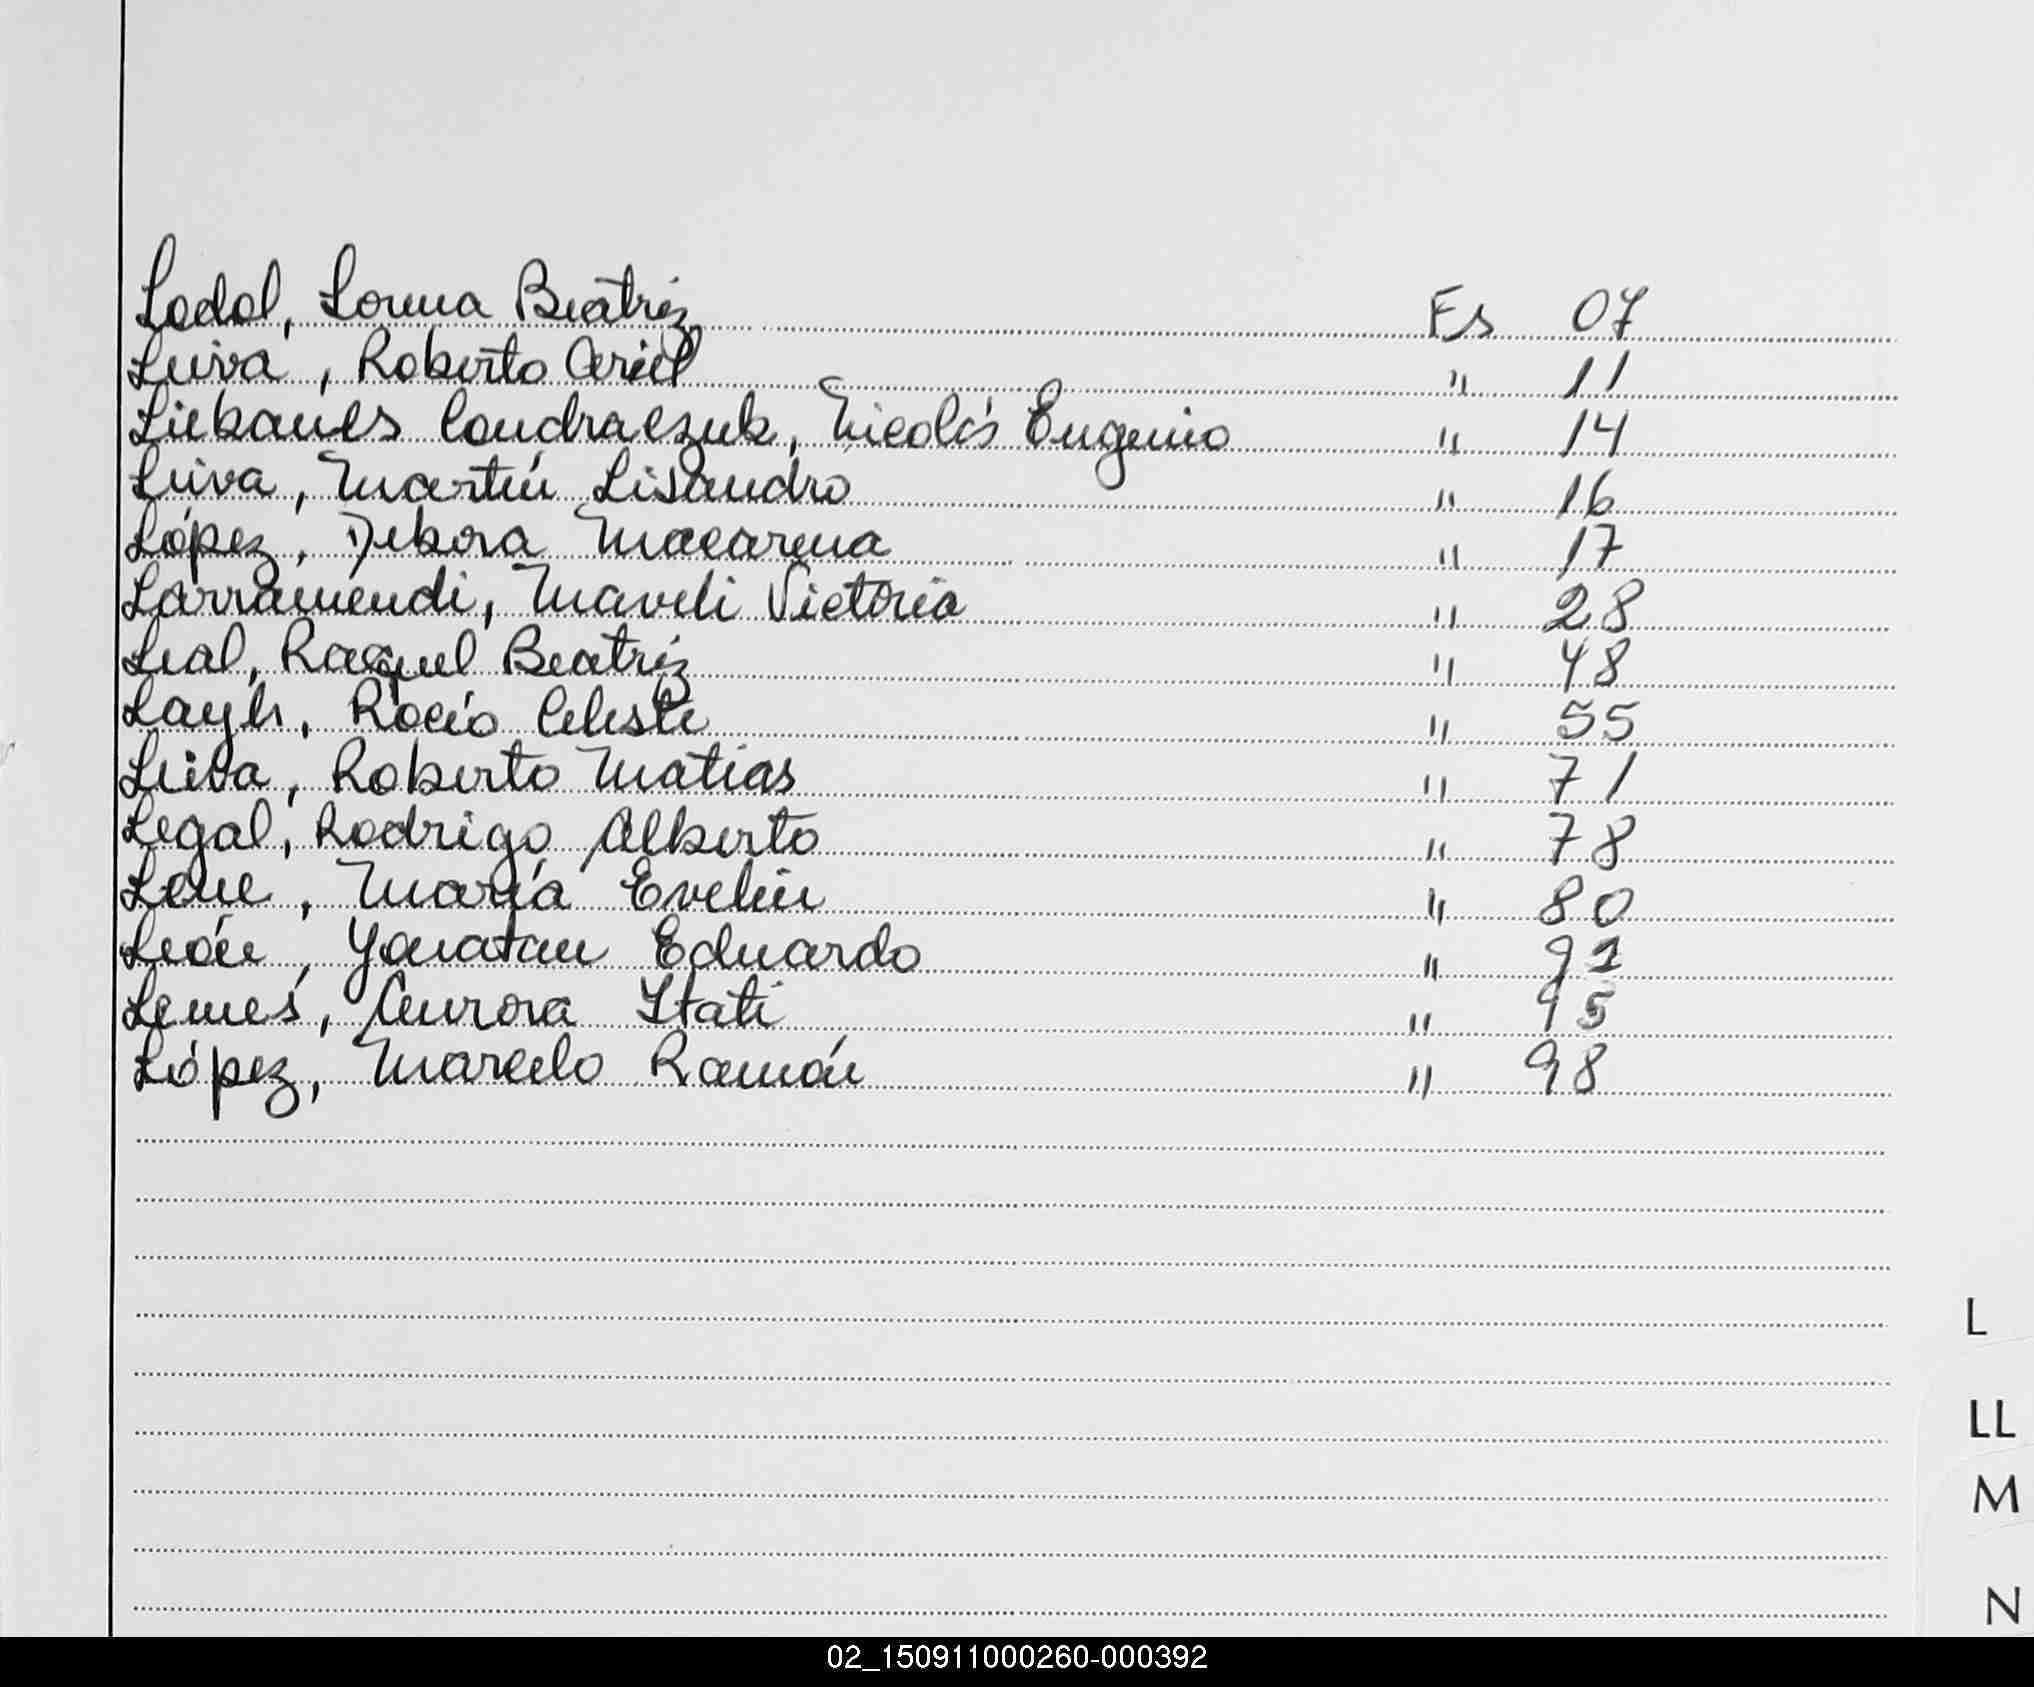 Lodol, Lorena Beatriz Fs 07
Leiva, Roberto Ariel " 11
Liebanes Condraczuk, Nicolás Eugenio " 14
Leiva, Martín Lisandro " 16
López, Debora Macarena " 17
Larramendi, Maveli Victoria " 28
Leal, Raquel Beatriz " 48
Layh, Rocío Celeste " 55
Leiva, Roberto Matias " 71
Legal, Rodrigo Alberto " 78
Lene, María Evelin " 80
León, Yonatan Eduardo " 91
Lemes, Aurora Itati " 95
López, Marcelo Ramón " 98
L
LL
M
N
02_150911000260-000392